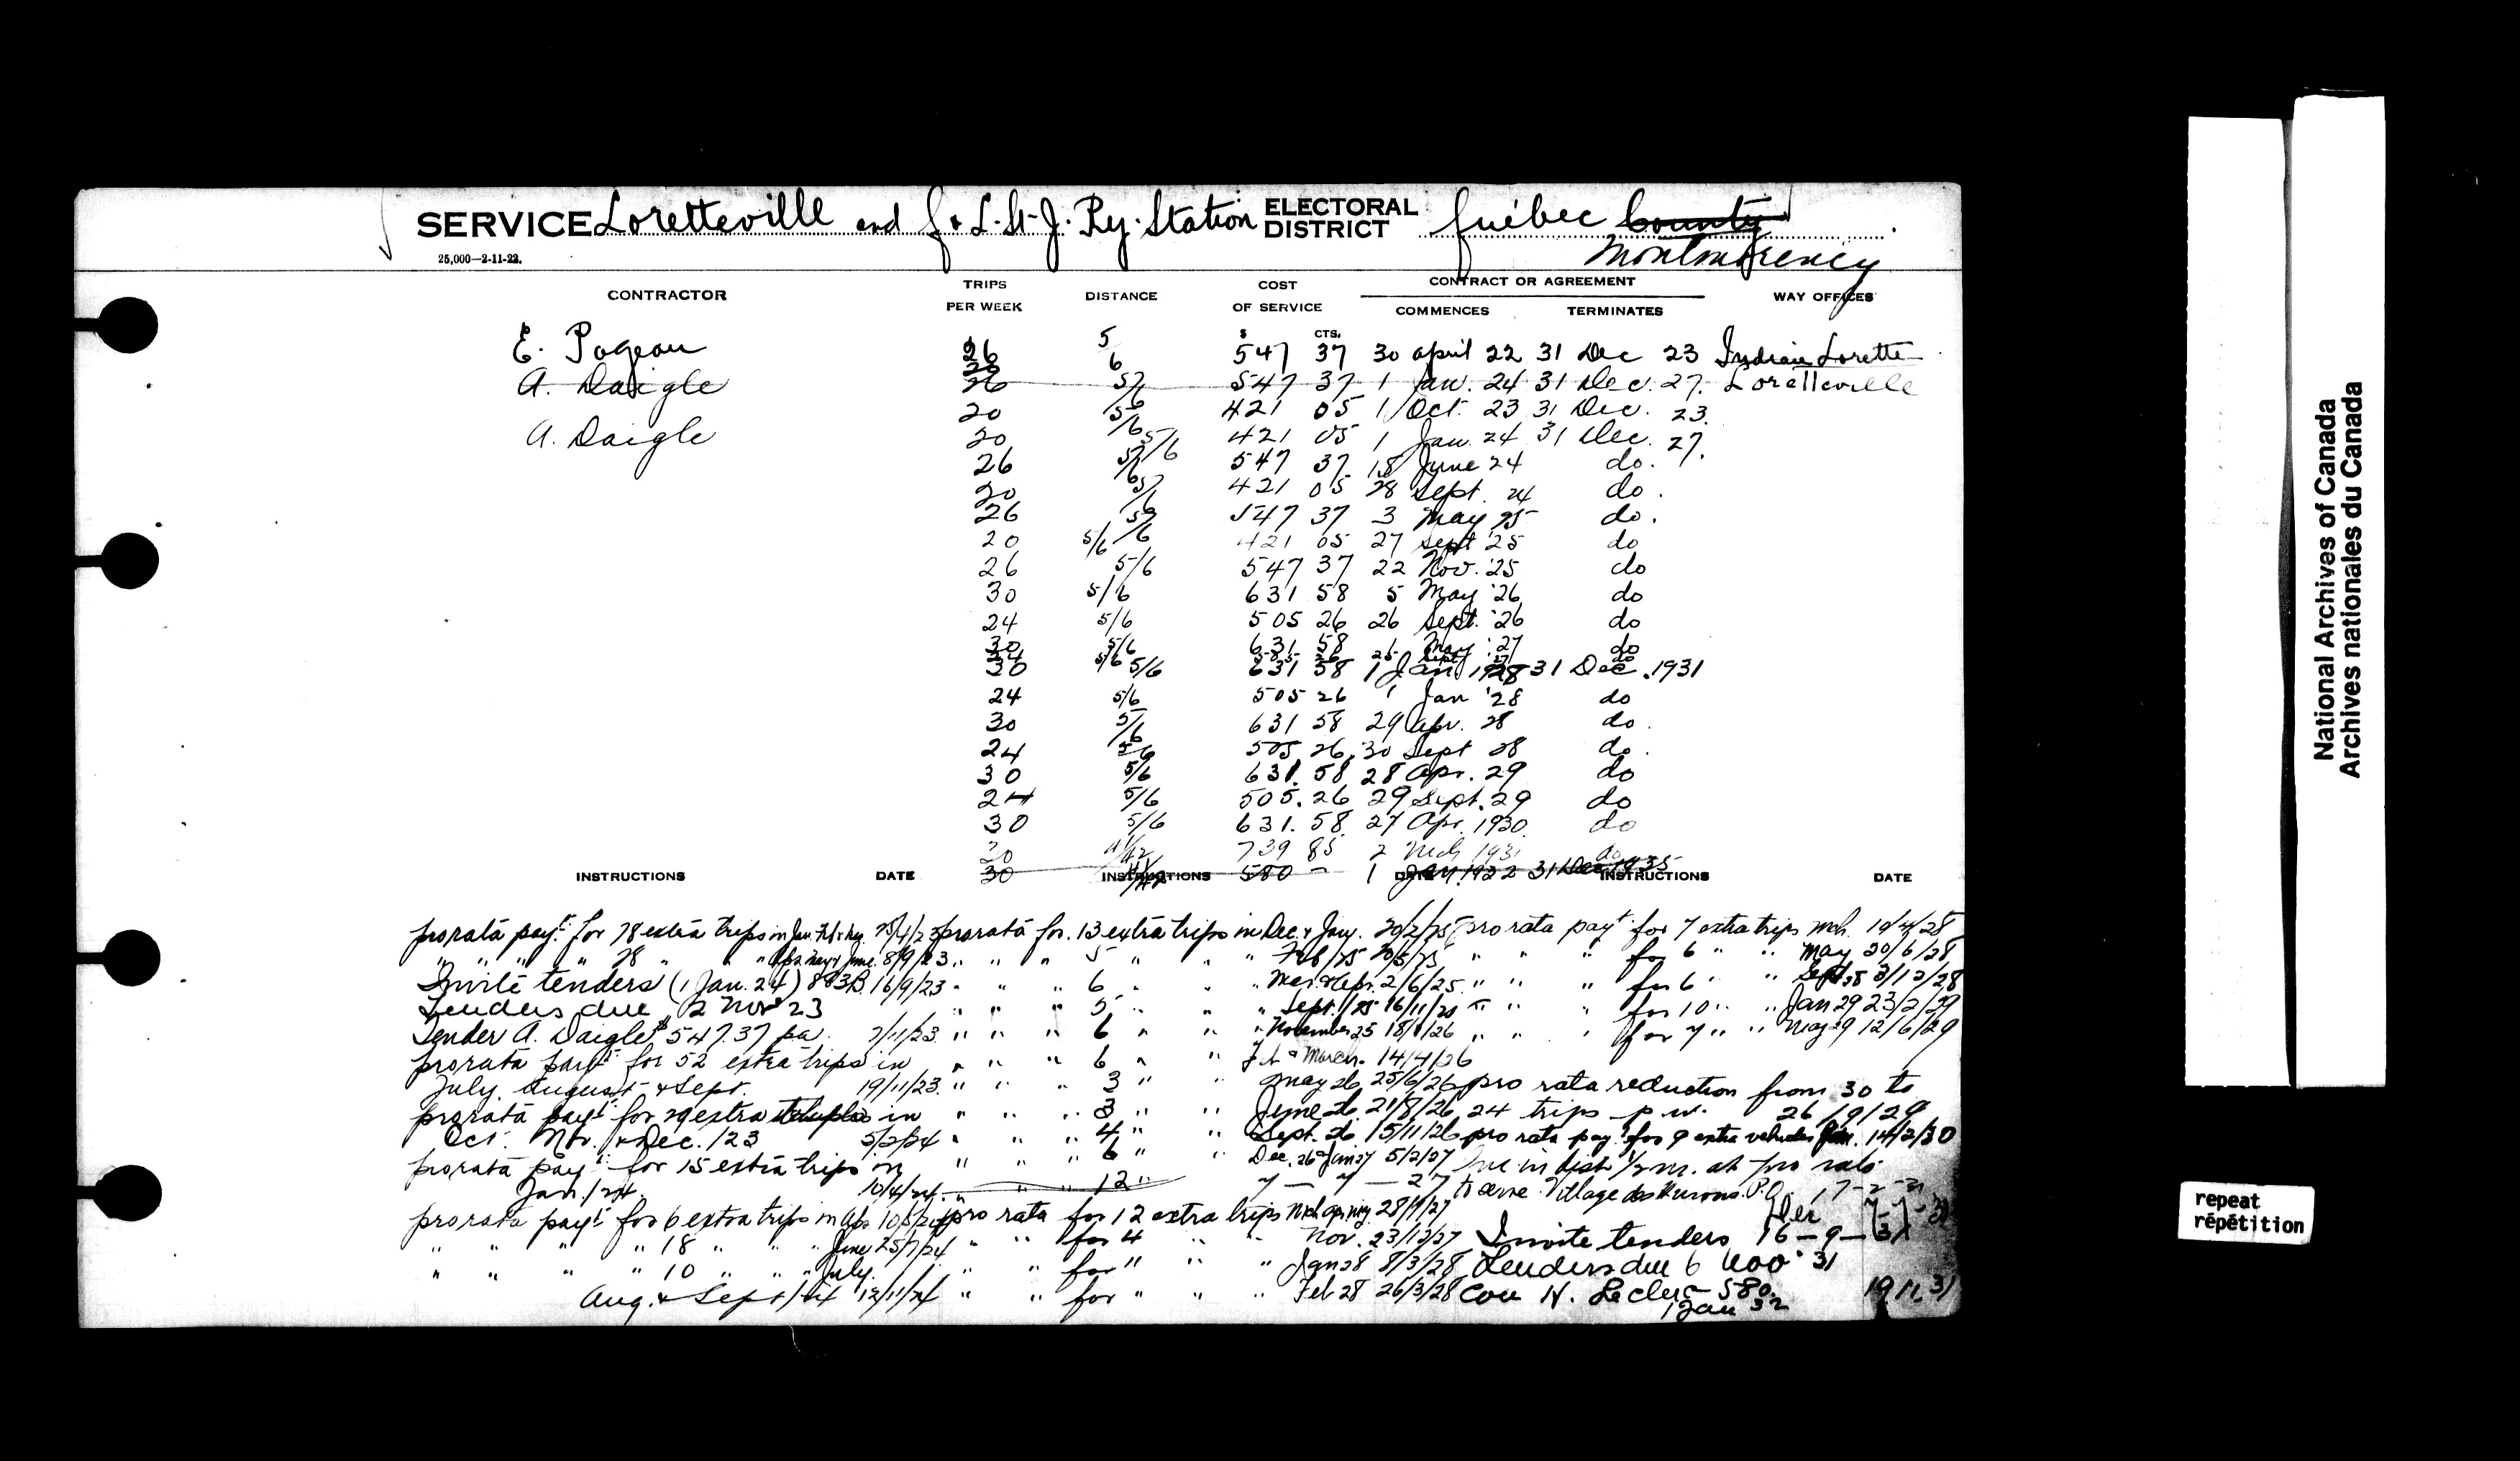 SERVICE Loretteville and Q & L. St. J. Ry. Station ELECTORAL DISTRICT Québec County
Montmorency
25,000—2-11-22.
CONTRACTOR TRIPS PER WEEK DISTANCE COST OF SERVICE CONTRACT OR AGREEMENT COMMENCES TERMINATES WAY OFFICES
$ CTS.
E. Pageau 26 5/6 547 37 30 april 22 31 Dec 23 Indian Lorette
A. Daigle 26 5/6 547 37 1 Jan. 24 31 Dec. 27. Loretteville
20 5/6 421 05 1 Oct. 23 31 Dec. 23.
A. Daigle 20 5/6 421 05 1 Jan. 24 31 Dec. 27.
26 5/6 547 37 15 June 24 do.
20 5/6 421 05 28 Sept. 24 do.
26 5/6 547 37 3 May 25 do.
20 5/6 421 05 27 Sept '25 do
26 5/6 547 37 22 Nov. '25 do
30 5/6 631 58 5 May '26 do
24 5/6 505 26 26 Sept. '26 do
30 5/6 631 58 1 May '27 do
24 5/6 25 Sept 27 do
30 5/6 631 58 1 Jan. 1928 31 Dec. 1931
24 5/6 505 26 1 Jan '28 do
30 5/6 631 58 29 Apr. 28 do.
24 5/6 505 26 30 Sept 28 do.
30 5/6 631. 58 28 Apr. 29 do
24 5/6 505. 26 29 Sept. 29 do
30 5/6 631. 58 27 Apr. 1930. do
739 85 2 Mch 1931 do
30 580 – 1 Jan. 1932 31 Dec 1935
INSTRUCTIONS DATE INSTRUCTIONS DATE INSTRUCTIONS DATE
pro rata payt. for 78 extra trips in Jan. Feb & Mar.
" " " " 78 " " Apr May & June. 8/9/23
Invite tenders (1 Jan. 24) 883B. 16/9/23
Tenders due 2 Nov 23
Tender A. Daigle $547.37 pa. 7/11/23.
pro rata payt. for 52 extra trips in
July, August & Sept. 19/11/23.
pro rata payt. for 29 extra trips in
Oct. Nov. & Dec. /23 5/2/24
pro rata payt. for 15 extra trips in
Jan. /24. 10/4/24.
pro rata payt. for 6 extra trips in Apr.
" " " " 18 " " " June 25/7/24
" " " " 10 " " " July.
Aug. & Sept /24 12/11/24
pro rata for. 13 extra trips in Dec & Jany. 20/2/25
" " " 5 " " " Feb /25
" " " 6 " " " Mar. & Apr. 2/6/25.
" " " 5 " " " Sept. /25 16/11/25
" " " 6 " " " November 25 18/1/26
" " " 6 " " Feb & March. 14/4/26
" " " 3 " " May 26 25/6/26
" " " 3 " " June 26. 21/8/26
" " " 4 " " Sept. 26 15/11/26
" " " 6 " " Dec. 26 & Jan 27 5/2/27
" " " 12 "
pro rata for 12 extra trips Mch Apr May
" " for 4 " " Nov. 23/12/27
" " for " " " Jan 28 8/3/28
" " for " " " Feb 28 26/3/28
pro rata payt for 7 extra trips Mch. 10/4/28
" " " for 6 " " May 20/6/28
" " " for 6 " " Sept. 28 3/12/28
" " " for 10 " " Jan 29 23/2/29
" " " for 7 " " May 29 12/6/29
pro rata reduction from 30 to
24 trips p. w. 26/9/29
pro rata payt for 9 extra vehicles Jan. 14/2/30
Inc in dist 1/2 m. at pro rata
to serve Village des Hurons P.O. 17-2-31
Invite tenders 16–9–31
Tenders due 6 Nov 31
Con H. Leclerc 580. 19.11.31
1 Jan 32
National Archives of Canada
Archives nationales du Canada
repeat
répétition